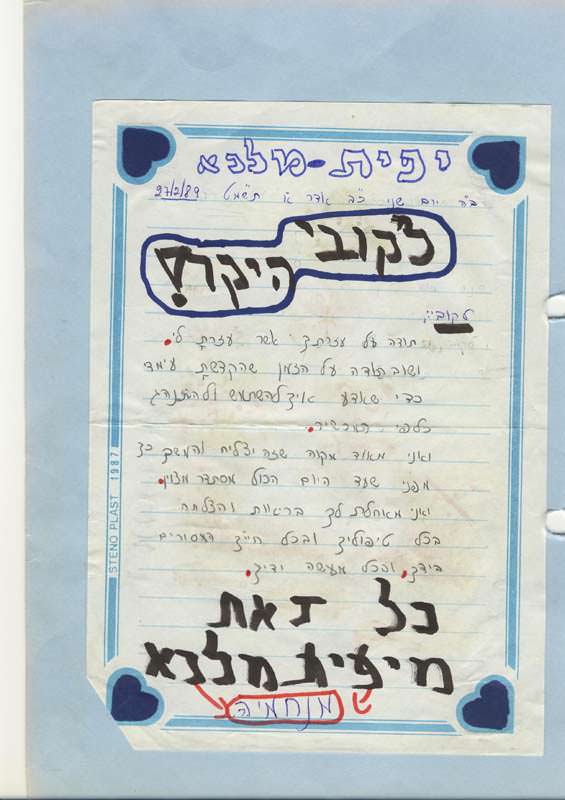 יפית-מלכא
ב"ה יום שני כ"ב אדר א' תשמ"ט 27/2/89
לקובי
היקר!
לקובי;
תודה על עזרתך אשר עזרת לי.
ושוב תודה על הזמן שהקדשת עימדי
כדי שאדע איך להשתמש ולהתנהג
כלפי המכשיר.
ואני מאוד מקוה שזה יצליח והמשך כך
מפני שעד היום הכול מסתדר מצוין.
ואני מאחלת לך בריאות והצלחה
בכל טיפוליך ובכל חייך המסורים
בידך, והכל מעשה ידיך.
כל זאת
מיפית מלכא
מנחמיה
STENO PLAST 1987